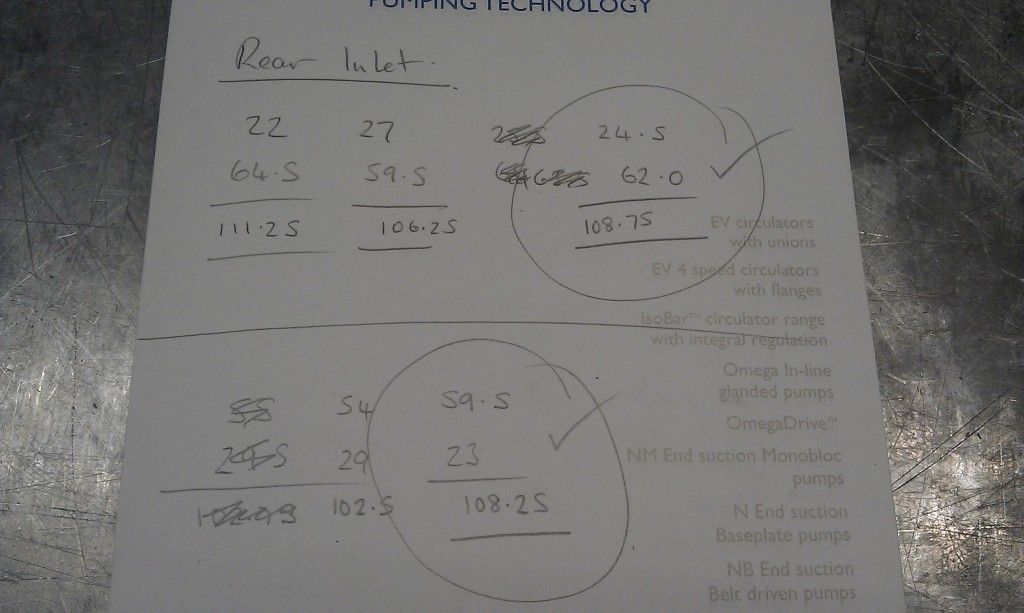 PUMPING TECHNOLOGY
Rear Inlet.
22 27 24.5
64.5 59.5 62.0
111.25 106.25 108.75
EV circulators
with unions
EV 4 speed circulators
with flanges
IsoBar™ circulator range
with integral regulation
Omega In-line
glanded pumps
OmegaDrive™
NM End suction Monobloc
pumps
N End suction
Baseplate pumps
NB End suction
Belt driven pumps
54 59.5
29 23
102.5 108.25